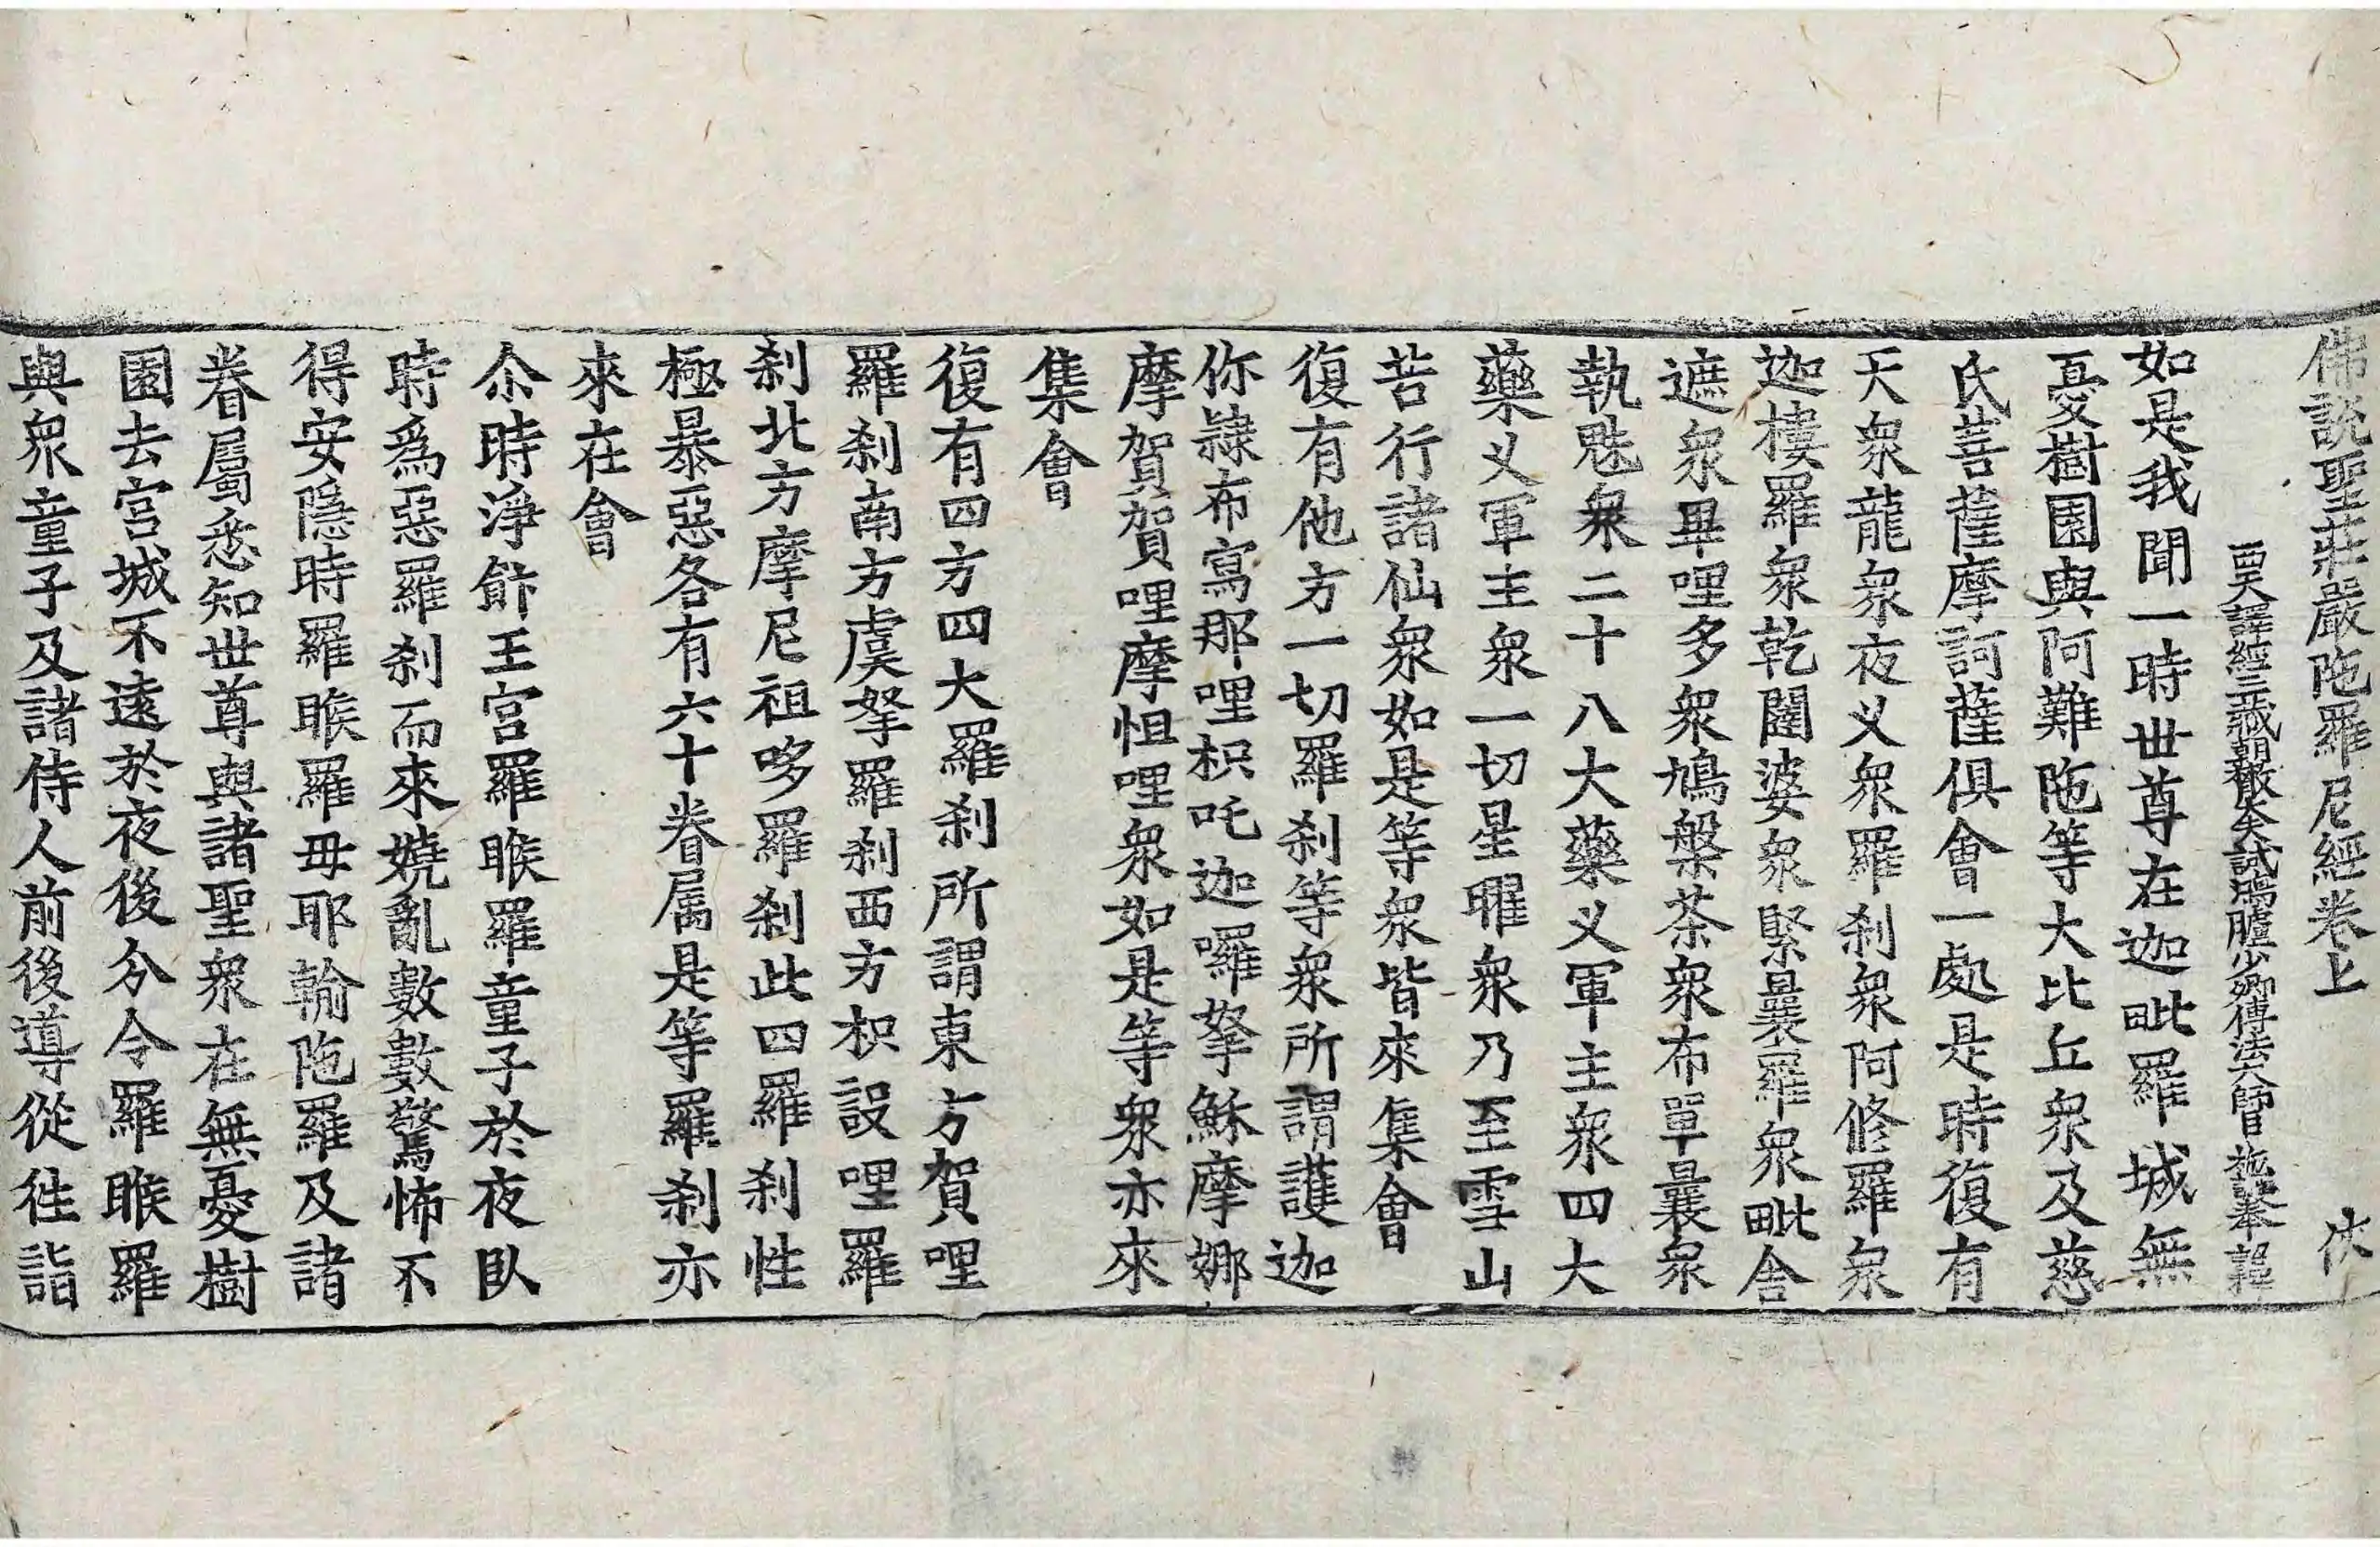 佛說聖莊嚴陁羅尼經卷上 俠
西天譯經三藏朝散大夫試鴻臚少卿傳法大師臣施護奉 詔
如是我聞一時世尊在迦毗羅城無
憂樹園與阿難陁等大比丘衆及慈
氏菩薩摩訶薩俱會一處是時復有
天衆龍衆夜义衆羅刹衆阿修羅衆
迦樓羅衆乾闥婆衆緊曩羅衆毗舍
遮衆畢哩多衆鳩槃茶衆布單曩衆
執魅衆二十八大藥义軍主衆四大
藥义軍主衆一切星曜衆乃至雪山
苦行諸仙衆如是等衆皆來集會
復有他方一切羅刹等衆所謂護迦
你隷布寫那哩枳吒迦囉拏穌摩娜
摩賀賀哩摩怛哩衆如是等衆亦來
集會
復有四方四大羅刹所謂東方賀哩
羅刹南方虞拏羅刹西方枳設哩羅
刹北方摩尼祖哆羅刹此四羅刹性
極暴惡各有六十眷属是等羅刹亦
來在會
尒時淨飰王宮羅睺羅童子於夜臥
時爲惡羅刹而來嬈亂數數驚怖不
得安隱時羅睺羅毋耶輸陁羅及諸
眷屬悉知世尊與諸聖衆在無憂樹
園去宮城不遠於夜後分令羅睺羅
與衆童子及諸侍人前後導從徃詣